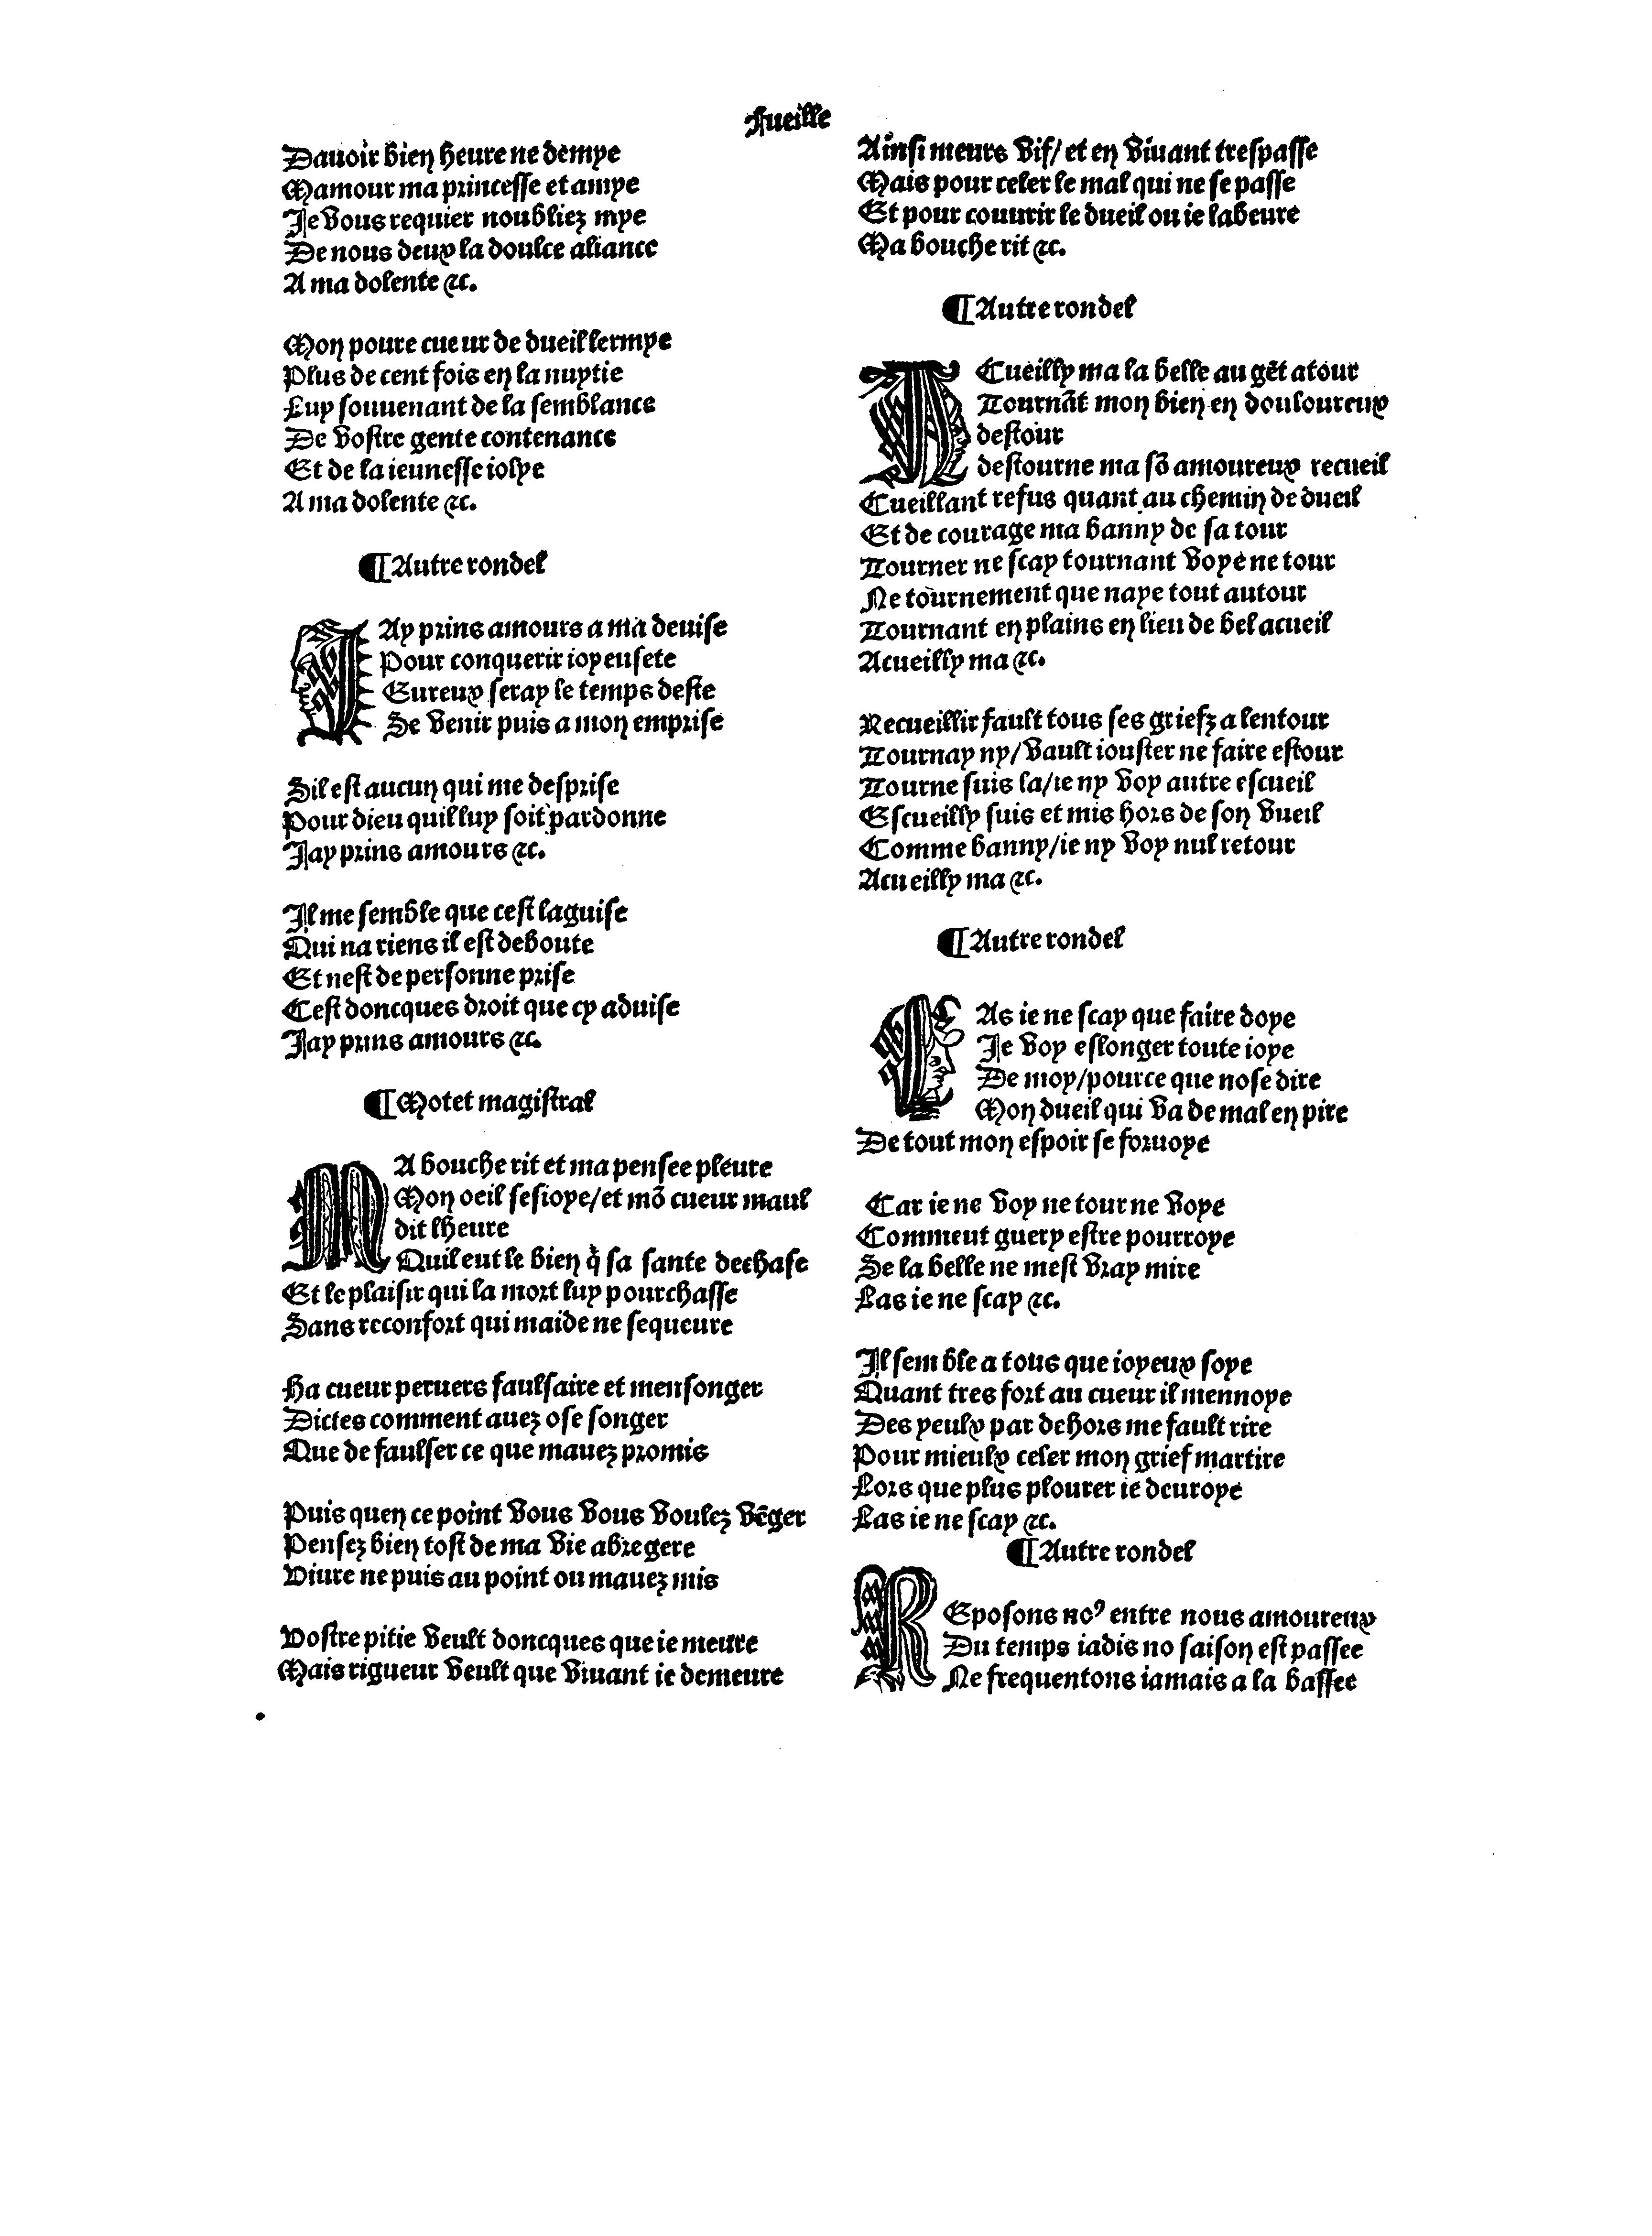 Fueille
Dauoir bien heure ne demye
Mamour ma princesse et amye
Je vous requier noubliez mye
De nous deux la doulce aliance
A ma dolente &c.
Mon poure cueur de dueil lermye
Plus de cent fois en la nuytie
Luy souuenant de la semblance
De vostre gente contenance
Et de la ieunesse iolye
A ma dolente &c.
¶Autre rondel
JAy prins amours a ma deuise
Pour conquerir ioyeusete
Eureux seray le temps deste
Se venir puis a mon emprise
Sil est aucun qui me desprise
Pour dieu quil luy soit pardonne
Jay prins amours &c.
Il me semble que cest la guise
Qui na riens il est deboute
Et nest de personne prise
Cest doncques droit que cy aduise
Jay prins amours &c.
¶Motet magistral
MA bouche rit et ma pensee pleure
Mon oeil sesioye/et mõ cueur maul
dit lheure
Quil eut le bien q̃ sa sante dechase
Et le plaisir qui la mort luy pourchasse
Sans reconfort qui maide ne sequeure
Ha cueur peruers faulsaire et mensonger
Dictes comment auez ose songer
Que de faulser ce que mauez promis
Puis quen ce point vous vous voulez vẽger
Pensez bien tost de ma vie abregere
Viure ne puis au point ou mauez mis
Vostre pitie veult doncques que ie meure
Mais rigueur veult que viuant ie demeure
Ainsi meurs vif/et en viuant trespasse
Mais pour celer le mal qui ne se passe
Et pour couurir le dueil ou ie labeure
Ma bouche rit &c.
¶Autre rondel
ACueilly ma la belle au gẽt atour
Tournãt mon bien en douloureux
destour
destourne ma sõ amoureux recueil
Cueillant refus quant au chemin de dueil
Et de courage ma banny de sa tour
Tourner ne scay tournant voye ne tour
Ne tournement que naye tout autour
Tournant en plains en lieu de bel acueil
Acueilly ma &c.
Recueillir fault tous ses griefz a lentour
Tournay ny/vault iouster ne faire estour
Tourne suis la/ie ny voy autre escueil
Escueilly suis et mis hors de son vueil
Comme banny/ie ny voy nul retour
Acueilly ma &c.
¶Autre rondel
LAs ie ne scay que faire doye
Je voy eslonger toute ioye
De moy/pource que nose dire
Mon dueil qui va de mal en pire
De tout mon espoir se foruoye
Car ie ne voy ne tour ne voye
Comment guery estre pourroye
Se la belle ne mest vray mire
Las ie ne scay &c.
Il semble a tous que ioyeux soye
Quant tres fort au cueur il mennoye
Des yeulx par dehors me fault rire
Pour mieulx celer mon grief martire
Lors que plus plourer ie deuroye
Las ie ne scay &c.
¶Autre rondel
REposons noꝰ entre nous amoureux
Du temps iadis no saison est passee
Ne frequentons iamais a la bassee